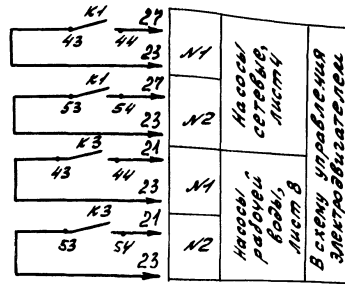 К1 27
43 44
23
К1 27
53 54
23
К3 21
43 44
23
К3 21
53 54
23
N1
N2
N1
N2
Насосы
сетевые,
лист 4
Насосы
рабочей
воды,
лист 8
В схему управления
электродвигателем